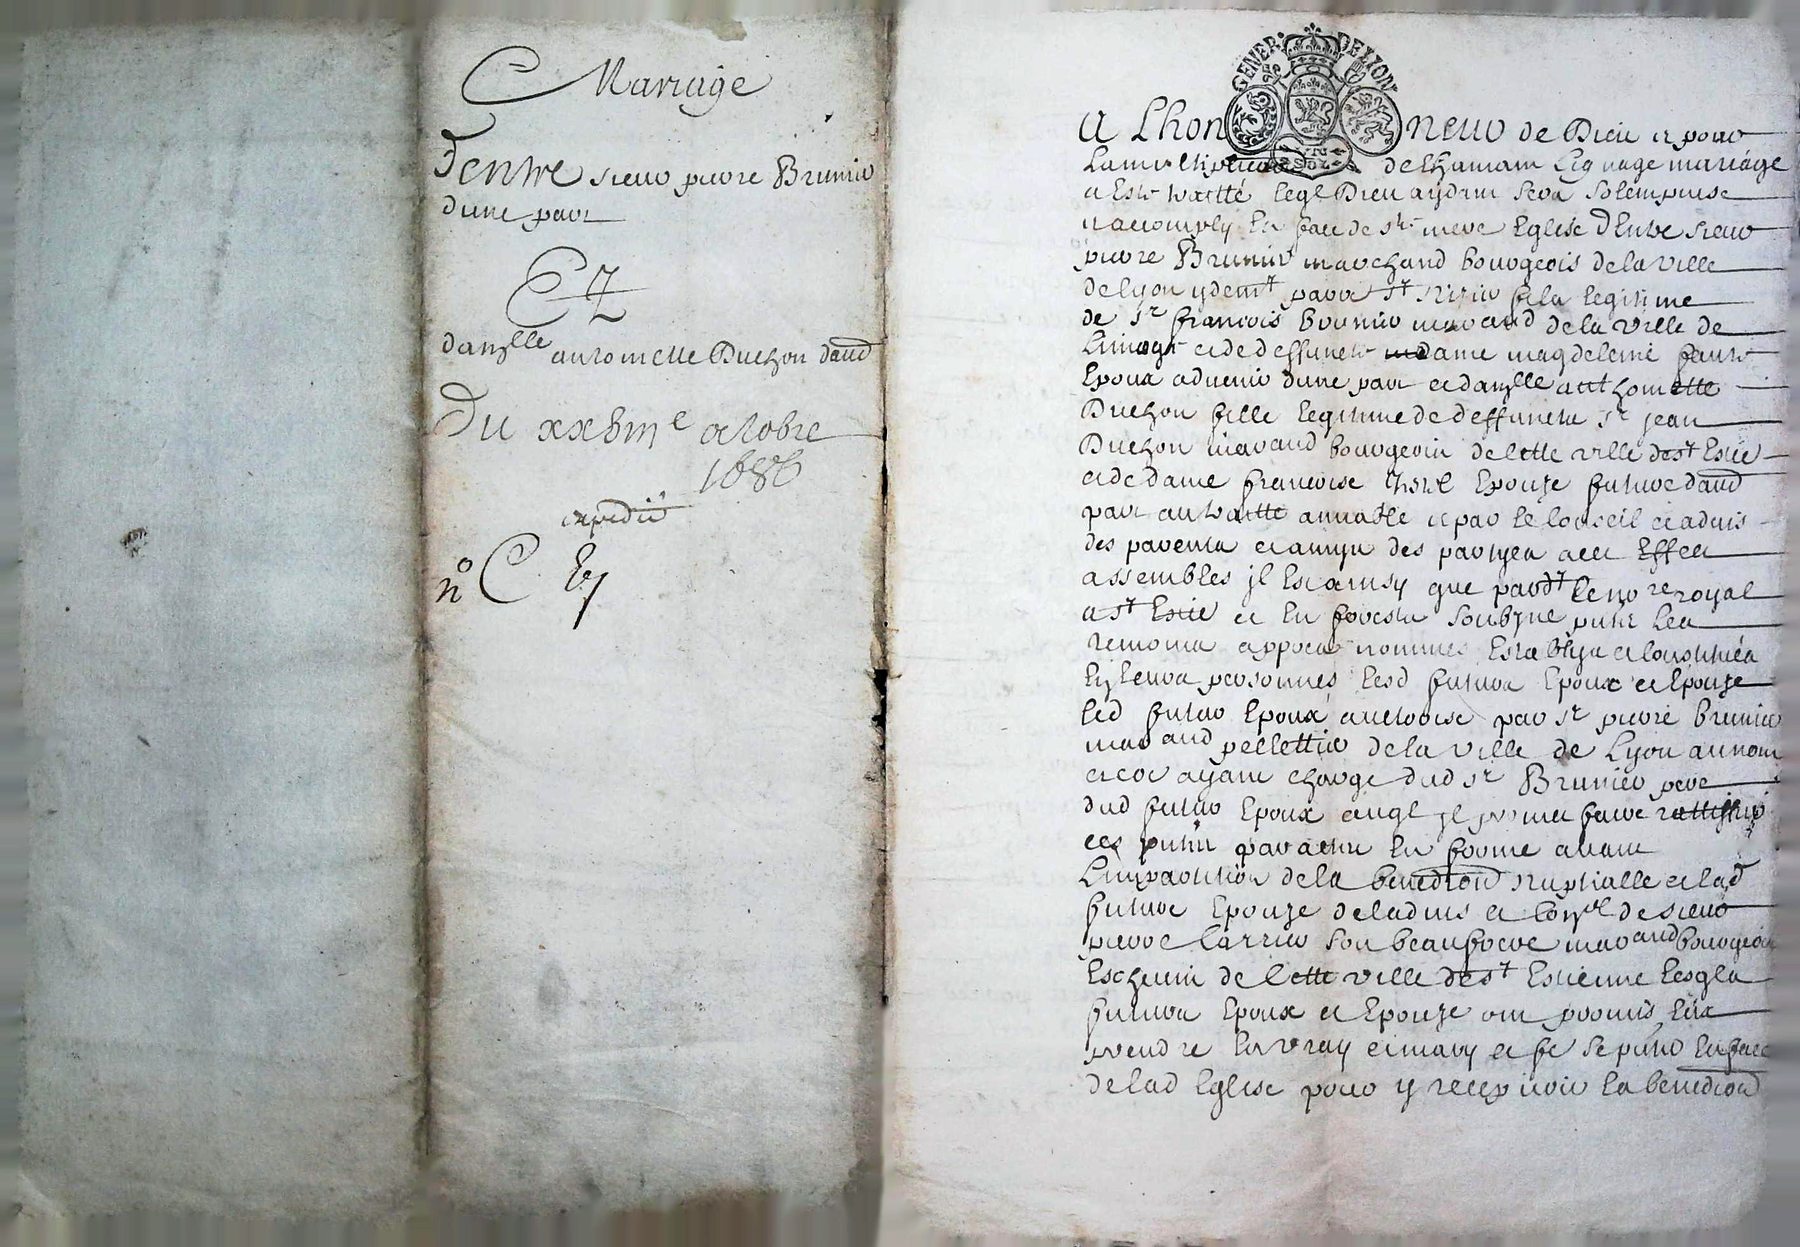 Mariage
D'entre sieur pierre Brunier
d'une part
Et
dam^lle anthoinette Duchon dau^d
Du xxbiii^e octobre
1686
expedié
n° C
GENER· DE LYON
A L'hon neur de Dieu et pour
La multiplication de lhumain Lignage mariage
a Esté traitté leq^l Dieu aydant sera solempnise
et accomply En face de s^te mere Eglise d'Entre sieur
pierre Brunier marchand bourgeois de la ville
de lyon y dem^t paroisse s^t Nizier fils legitime
de s^r francois Brunier marcand de la ville de
et de deffuncte dame magdeleine
Epoux advenir d'une part et dam^lle anthoinette
Duchon fille legitime de deffunct s^r jean
Duchon marcand bourgeois de cette ville de s^t Estie
et de dame francoise Epouze future dau^d
part au traitté amiable et par le conseil et advis
des parents et amys des partyes a cet Effect
assembles jl Est ainsy que par d^t le no^re royal
a s^t Estie et En forests soubzne put^s Les
temoins appres nommes Establys et constitués
En Leurs personnes lesd futurs Epoux et Epouze
led futur Epoux authorise par s^r pierre Brunier
marcand pellettier de la ville de Lyon au nom
et co^e ayant charge dud s^r Brunier pere
dud futur Epoux auq^l jl promet faire rattiffier
ces putes par acte En forme avant
L'impartition de la benediction Nuptialle et lad
future Epouze de l'advis et de sieur
pierre Carrier son beaufrere marcand bourgeois
Eschevin de Cette ville de s^t Estienne Lesq^ls
futurs Epoux et Epouze ont promis
prendre En vray et mary et fe se En face
de lad Eglise pour y recepvoir la benediction